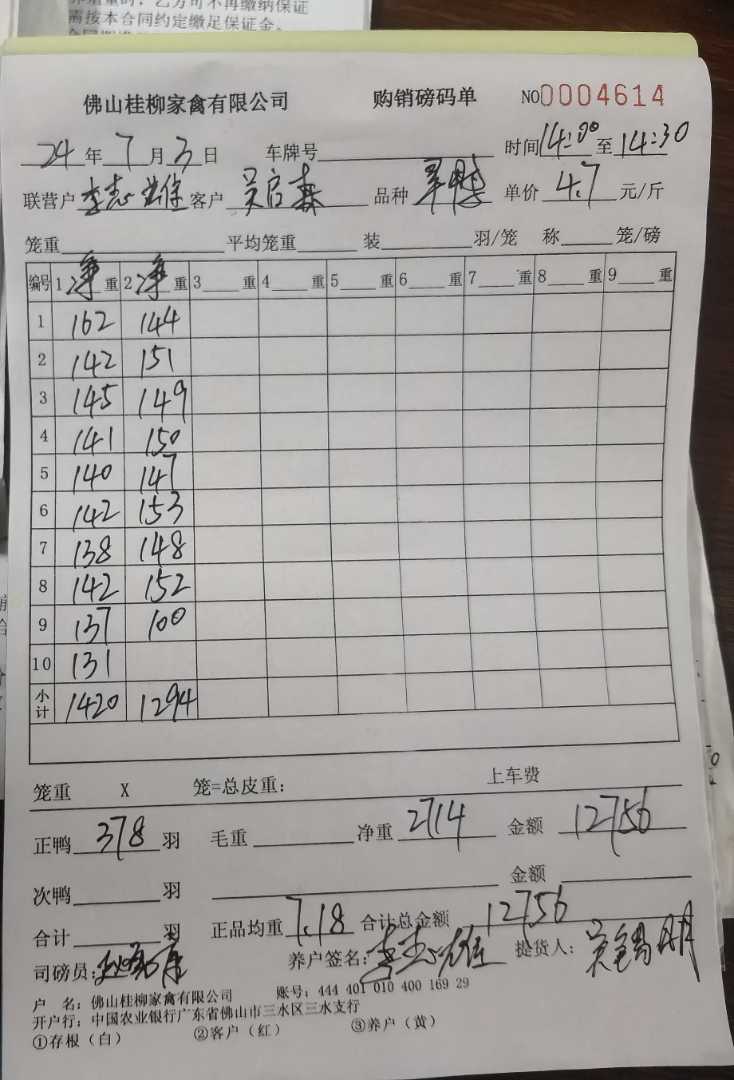 乙方可不再缴纳保证
需按本合同约定缴足保证金。
佛山桂柳家禽有限公司 购销磅码单 NO0004614
24年7月3日 车牌号 时间14:00至14:30
联营户 李志雄 客户 吴启森 品种 单价 4.7 元/斤
笼重 平均笼重 装 羽/笼 称 笼/磅
编号 1净重 2净重 3 重 4 重 5 重 6 重 7 重 8 重 9 重
1 162 144
2 142 151
3 145 149
4 141 150
5 140 147
6 142 153
7 138 148
8 142 152
9 137 100
10 131
小计 1420 1294
笼重 X 笼=总皮重: 上车费
正鸭 378 羽 毛重 净重 2714 金额 12756
次鸭 羽 金额
合计 羽 正品均重 7.18 合计总金额 12756
司磅员: 养户签名: 李志雄 提货人:
户 名: 佛山桂柳家禽有限公司 账号: 444 401 010 400 169 29
开户行: 中国农业银行广东省佛山市三水区三水支行
①存根（白） ②客户（红） ③养户（黄）